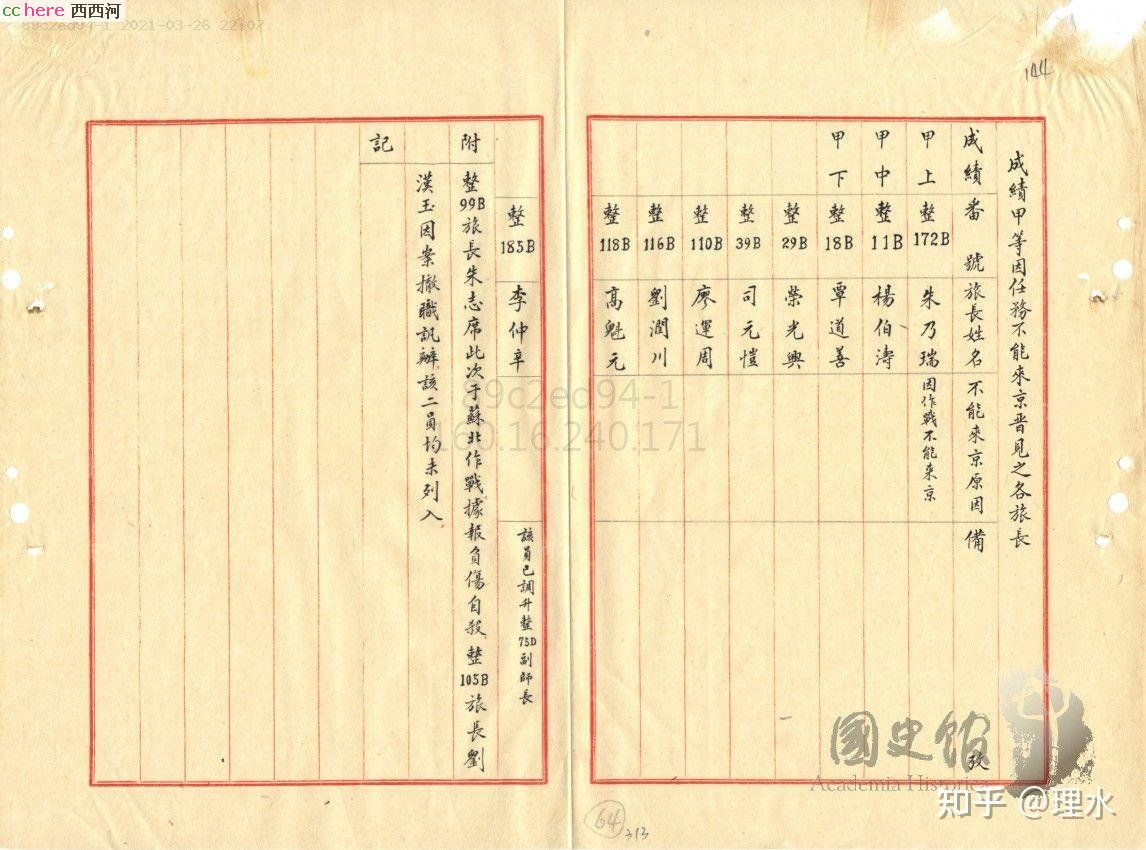 cchere 西西河
89c2ed94-1 2021-03-26 22:07
144
成績甲等因任務不能來京晋見之各旅長
成績 番號 旅長姓名 不能來京原因 備攷
甲上 整172B 朱乃瑞 因作戰不能來京
甲中 整11B 楊伯濤
甲下 整18B 覃道善
整29B 榮光興
整39B 司元愷
整110B 廖運周
整116B 劉潤川
整118B 高魁元
整185B 李仲辛 該員已調升整75D副師長
附 整99B旅長朱志席此次于蘇北作戰據報負傷自殺整105B旅長劉
漢玉因案撤職訊辦該二員均未列入
記
89c2ed94-1
160.16.240.171
國史館
Academia Historica
64
313
知乎 @理水